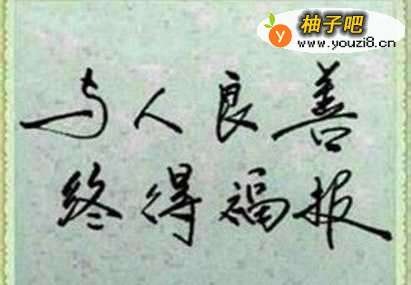 柚子吧
www.youzi8.cn
与人良善
终得福报